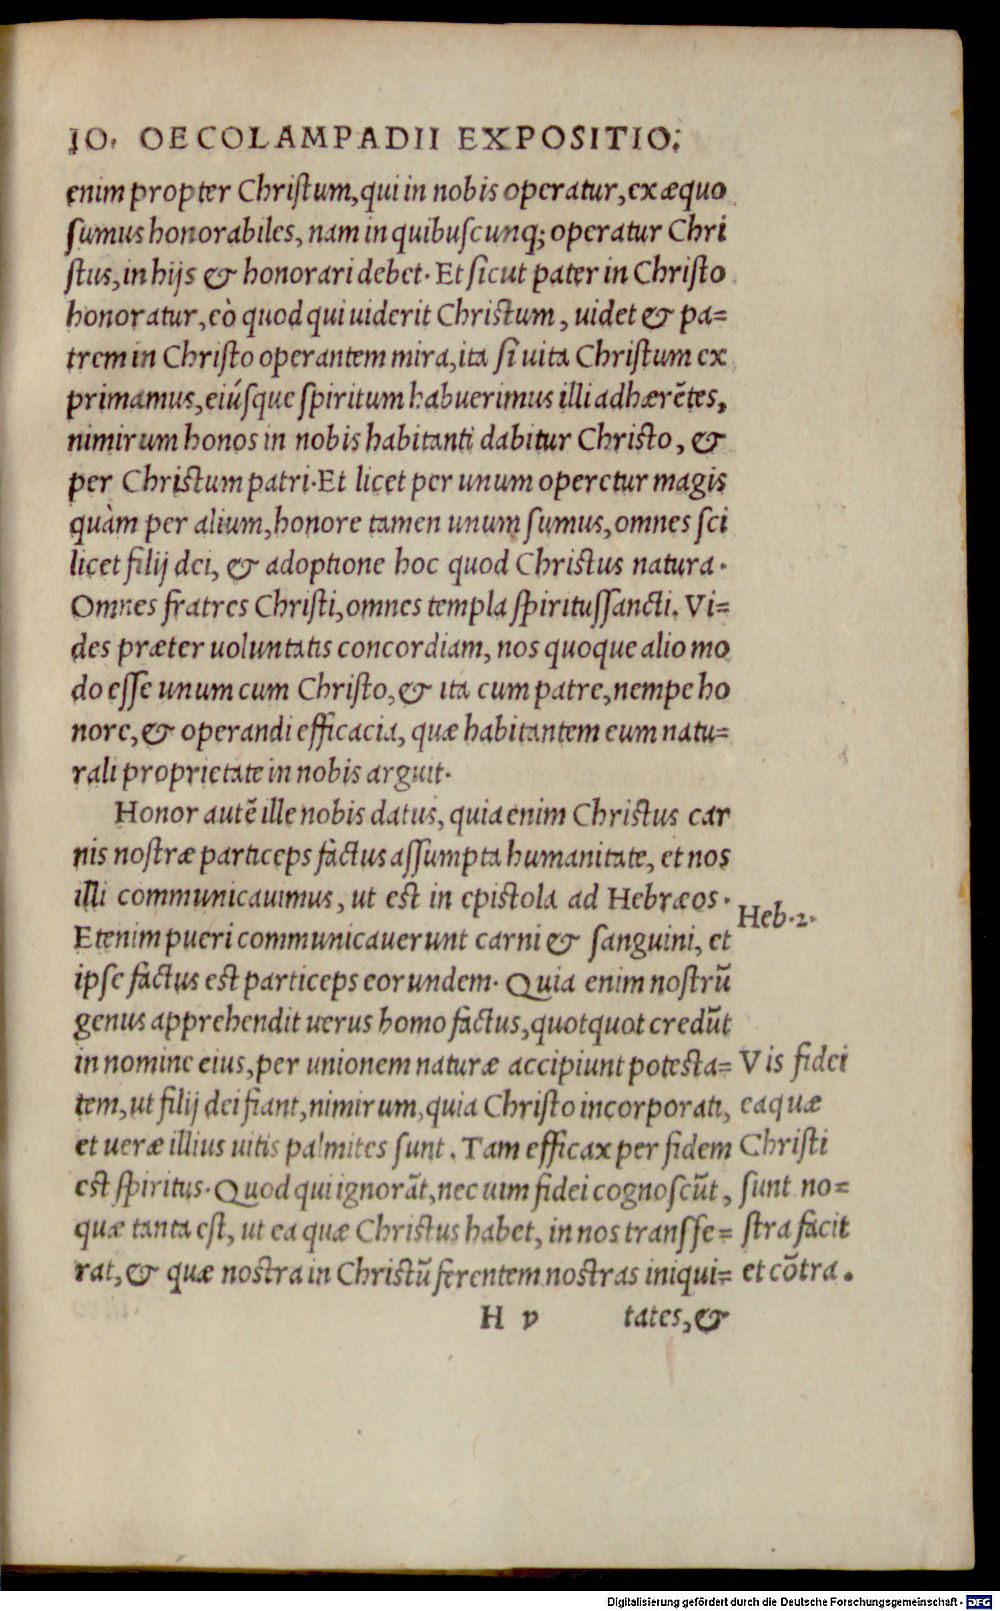 IO. OECOLAMPADII EXPOSITIO.
enim propter Christum, qui in nobis operatur, ex æquo
sumus honorabiles, nam in quibuscunq; operatur Chri
stus, in hijs & honorari debet. Et sicut pater in Christo
honoratur, eò quod qui uiderit Christum, uidet & pa=
trem in Christo operantem mira, ita si uita Christum ex
primamus, eiúsque spiritum habuerimus illi adhærẽtes,
nimirum honos in nobis habitanti dabitur Christo, &
per Christum patri. Et licet per unum operetur magis
quàm per alium, honore tamen unum sumus, omnes sci
licet filij dei, & adoptione hoc quod Christus natura.
Omnes fratres Christi, omnes templa spiritussancti. Vi=
des præter uoluntatis concordiam, nos quoque alio mo
do esse unum cum Christo, & ita cum patre, nempe ho
nore, & operandi efficacia, quæ habitantem eum natu=
rali proprietate in nobis arguit.
Honor autẽ ille nobis datus, quia enim Christus car
nis nostræ particeps factus assumpta humanitate, et nos
illi communicauimus, ut est in epistola ad Hebræos.
Heb. 2.
Etenim pueri communicauerunt carni & sanguini, et
ipse factus est particeps eorundem. Quia enim nostrũ
genus apprehendit uerus homo factus, quotquot credũt
in nomine eius, per unionem naturæ accipiunt potesta=
tem, ut filij dei fiant, nimirum, quia Christo incorporati,
et ueræ illius uitis palmites sunt. Tam efficax per fidem
est spiritus. Quod qui ignorãt, nec uim fidei cognoscũt,
quæ tanta est, ut ea quæ Christus habet, in nos transfe=
rat, & quæ nostra in Christũ ferentem nostras iniqui=
Vis fidei
ea quæ
Christi
sunt no=
stra facit
et cõtra.
H v tates, &
Digitalisierung gefördert durch die Deutsche Forschungsgemeinschaft - DFG